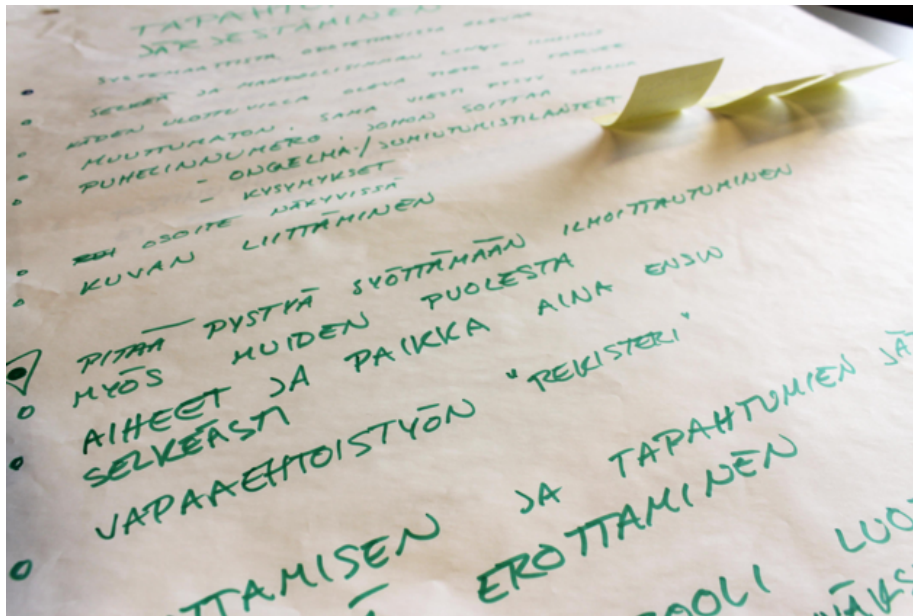 TAPAHTU
JÄRJESTÄMINEN
SYSTEMAATTISTA
SELKEÄ JA MAHDOLLISIMMAN
KÄDEN ULOTTUVILLA OLEVA TIETO
MUUTTUMATON. SAMA VIESTI PYSYY SAMANA
PUHELINNUMERO, JOHON SOITTAA
- ONGELMA-/SUMIUTUMISTILANTEET
- KYSYMYKSET
OSOITE NÄKYVISSÄ
KUVAN LIITTÄMINEN
PITÄÄ PYSTYÄ SYÖTTÄMÄÄN ILMOITTAUTUMINEN
MYÖS MUIDEN PUOLESTA
AIHEET JA PAIKKA AINA ENSIN
SELKEÄSTI
VAPAAEHTOISTYÖN "REKISTERI"
TTAMISEN JA TAPAHTUMIEN JÄ
EROTTAMINEN
OOLI LUO